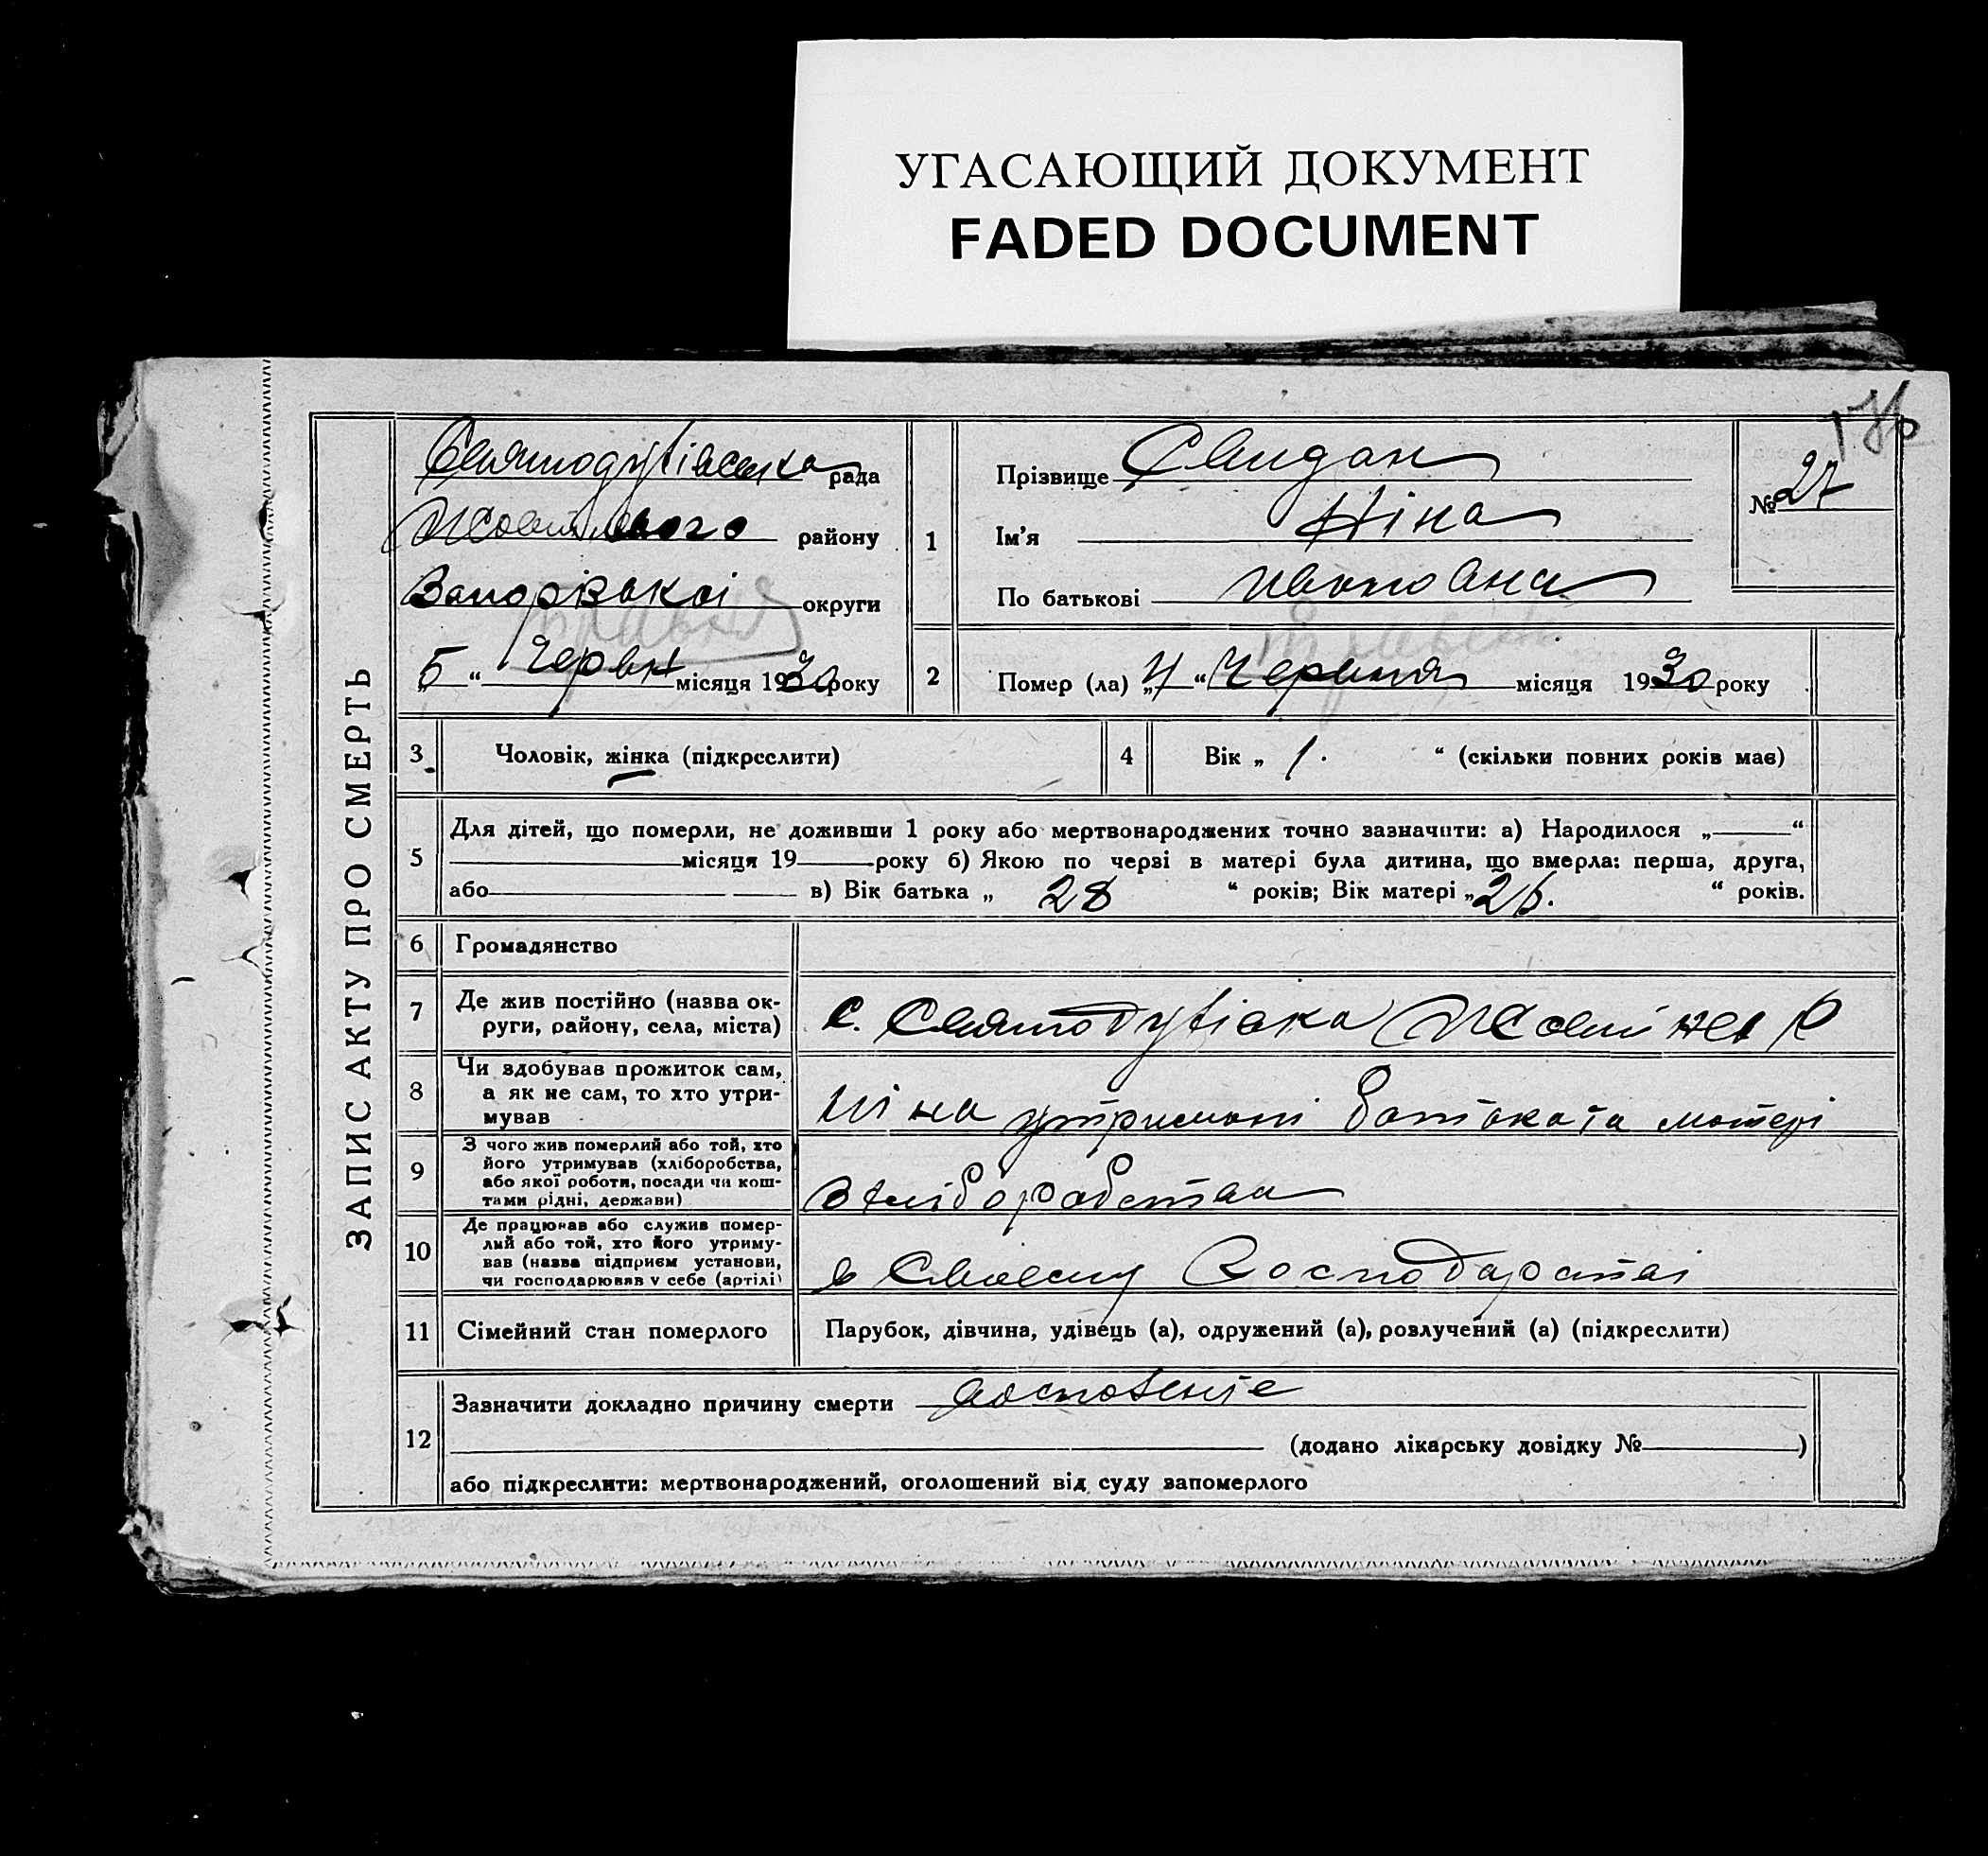 УГАСАЮЩИЙ ДОКУМЕНТ
FADED DOCUMENT
176
ЗАПИС АКТУ ПРО СМЕРТЬ
Святодухівська рада
району
Запорізької округи
„5“ Червня місяця 1930 року
1
Прізвище Свидан
Ім'я Ніна
По батькові Ивановна
№ 27
2
Помер (ла) „4“ Червня місяця 1930 року
3 Чоловік, жінка (підкреслити)
4 Вік „ 1. “ (скільки повних років має)
5
Для дітей, що померли, не доживши 1 року або мертвонароджених точно зазначити: а) Народилося „ “
місяця 19 року б) Якою по черзі в матері була дитина, що вмерла: перша, друга,
або в) Вік батька „ 28 “ років; Вік матері „ 26. “ років.
6 Громадянство
7 Де жив постійно (назва ок-
руги, району, села, міста)
с. Святодухівка
8 Чи здобував прожиток сам,
а як не сам, то хто утри-
мував
ні на утримані батька та матері
9 З чого жив померлий або той, хто
його утримував (хліборобства,
або якої роботи, посади чи кош-
тами рідні, держави)
з хліборобства
10 Де працював або служив помер-
лий або той, хто його утриму-
вав (назва підприєм установи,
чи господарював у себе (артілі)
в Своему Господарстві
11 Сімейний стан померлого
Парубок, дівчина, удівець (а), одружений (а), розлучений (а) (підкреслити)
12
Зазначити докладно причину смерти
(додано лікарську довідку № )
або підкреслити: мертвонароджений, оголошений від суду запомерлого